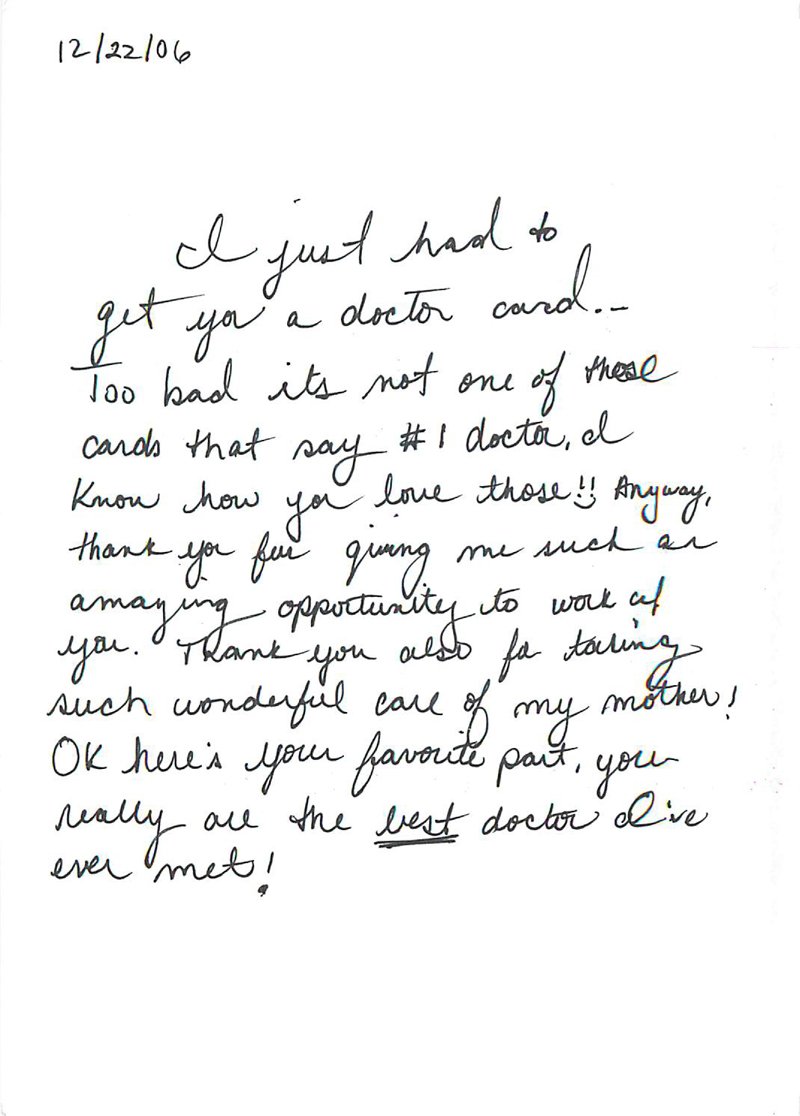 12/22/06
I just had to
get you a doctor card...
Too bad its not one of these
cards that say #1 doctor, I
know how you love those!! Anyway,
thank you for giving me such an
amazing opportunity to work w/
you. Thank you also for taking
such wonderful care of my mother!
OK here's your favorite part, you
really are the best doctor I've
ever met!